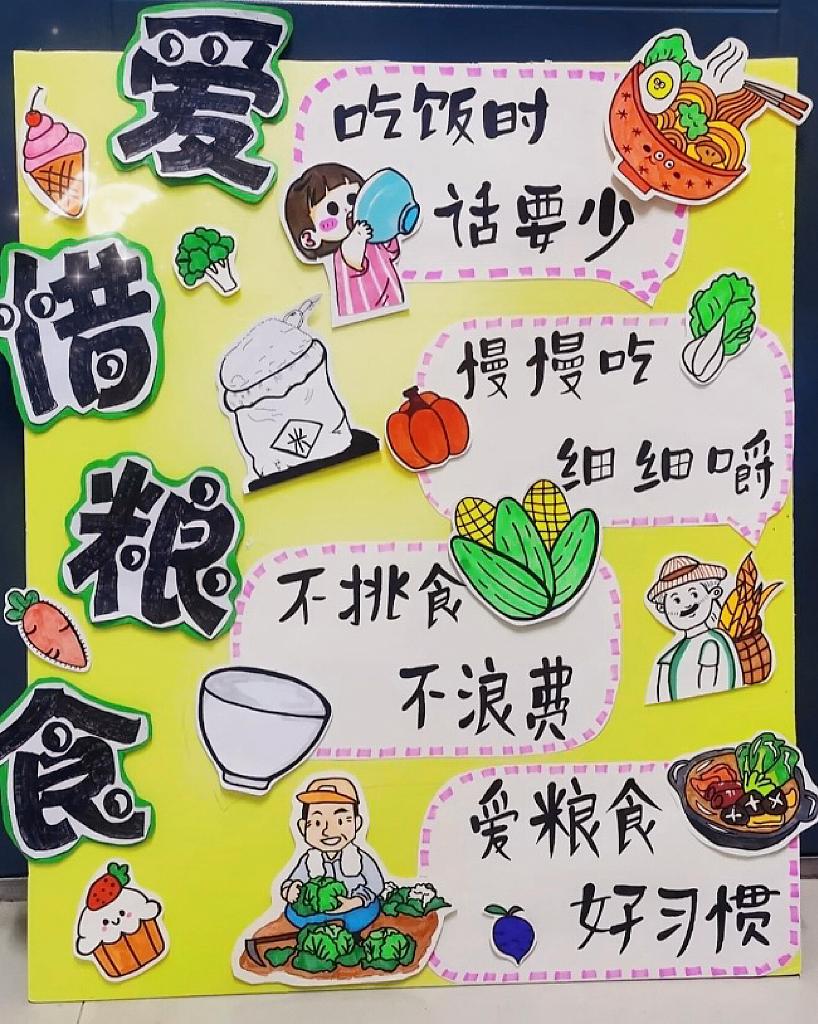 爱
借
粮
食
吃饭时
话要少
米
慢慢吃
细细嚼
不挑食
不浪费
爱粮食
好习惯